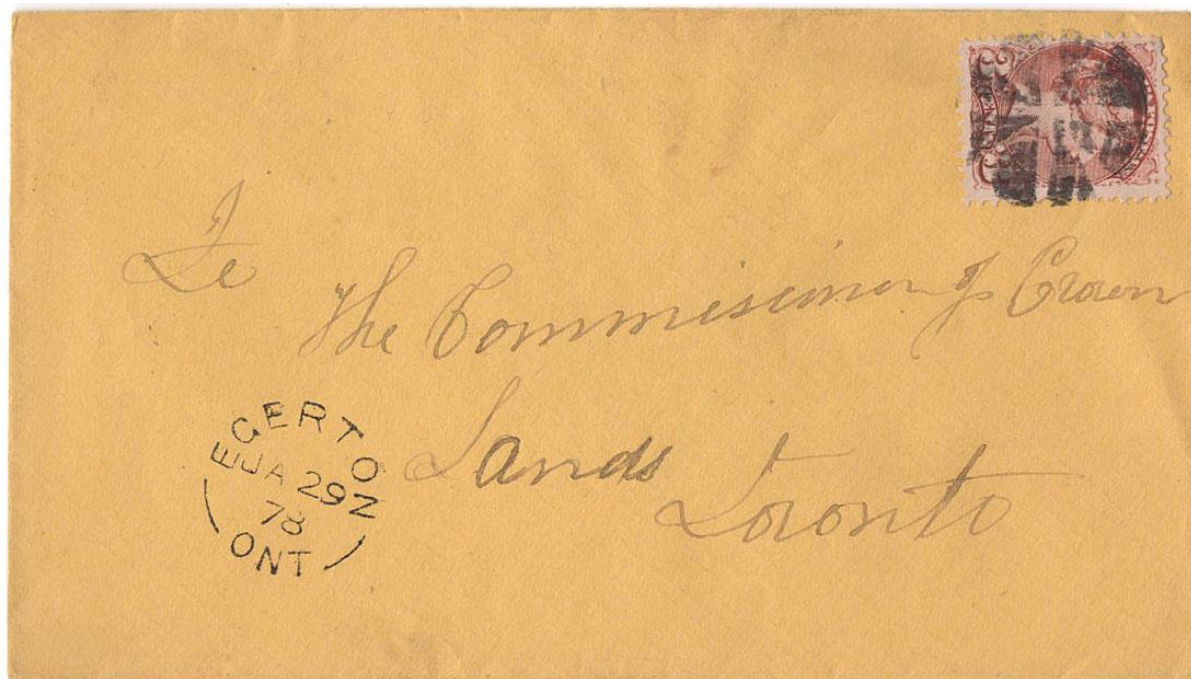 To
The Commissioner of Crown
Lands
Toronto
EGERTON
JA 29
78
ONT
3